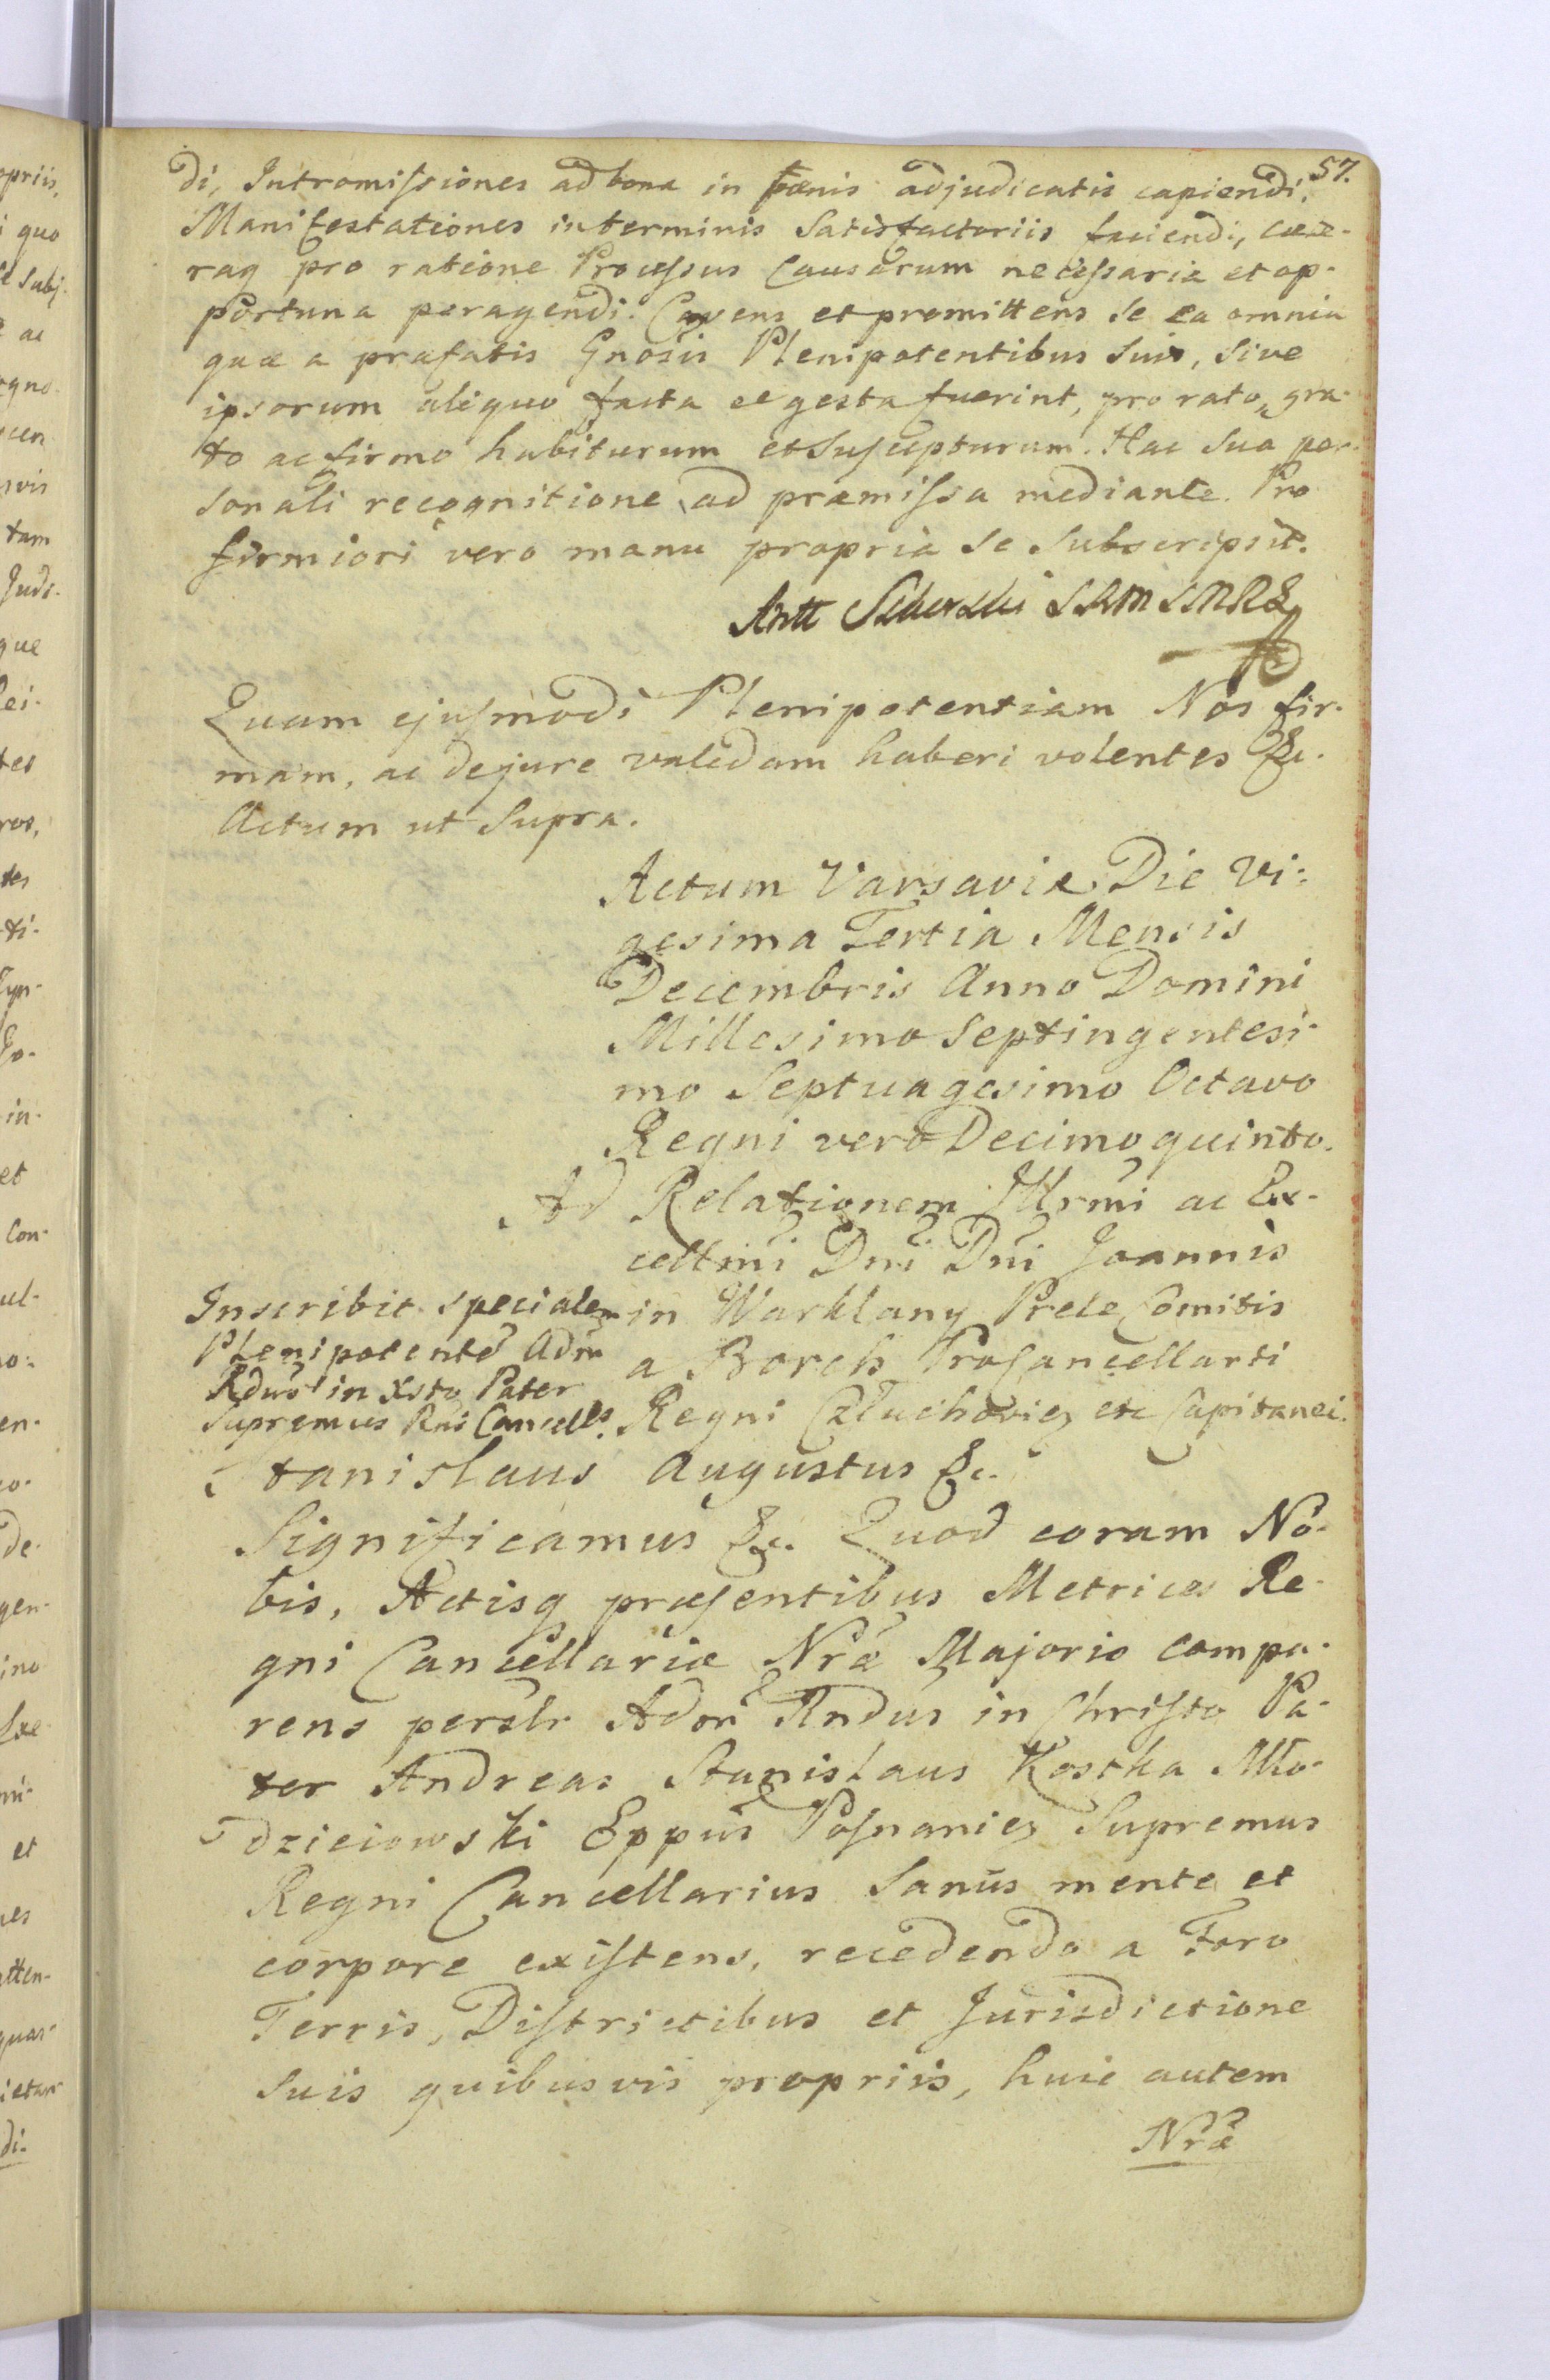 57.
di, Intromiſsiones ad bona in pœnis adjudicatis capiendi,
Manifestationes in terminis Satisfactoriis faciendi, cæte-
raq pro ratione Proceſsus Causarum neceſsaria et op-
portuna peragendi. Cavens et promittens Se ea omnia
quæ a præfatis Gnosis Plenipotentibus Suis, Sive
ipsorum aliquo facta et gesta fuerint, pro rato, gra-
to ac firmo habiturum et Suſcepturum. Hac Sua per-
sonali recognitione ad præmiſsa mediante. Pro
firmiori vero manu propria Se Subscripsit.
Antt
Quam ejuſmodi Plenipotentiam Nos fir-
mam, ac de jure validam haberi volentes &c.
Actum ut Supra.
Actum Varsaviæ Die Vi-
gesima Tertia Mensis
Decembris Anno Domini
Millesimo Septingentesi-
mo Septuagesimo Octavo
Regni vero Decimo quinto.
Ad Relationem Illrmi ac Ex-
celtmi Dni Dni Joannis
in Warklany Prele Comitis
a Borch Procancellarii
Regni Człuchovieꝫ etc Capitanei.
Inscribit specialem
Plenipotentē Adm
Rdus in Xsto Pater
Supremus Rni Cancells.
Stanislaus Augustus &c.
Significamus &c. Quod coram No-
bis, Actisq præſentibus Metrices Re-
gni Cancellariæ Nræ Majoris compa-
rens persłr Adm Rndus in Chriſto Pa-
ter Andreas Stanislaus Kostka Mło-
dzieiowski Eppus Poſnanieꝫ Supremus
Regni Cancellarius Sanus mente et
corpore exiſtens, recedendo a Foro
Terris, Diſtrictibus et Jurisdictione
Suis quibusvis propriis, huic autem
Nræ